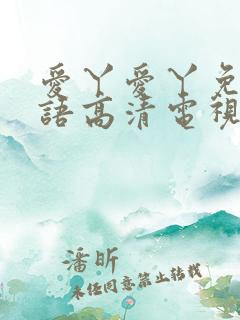 愛丫愛丫免
語高清電視
潘昕
未任同意禁止转载